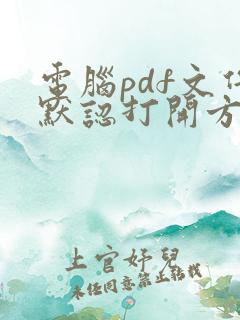 電腦pdf文件
默認打開方
上官妤兒
未任同意禁止轉載